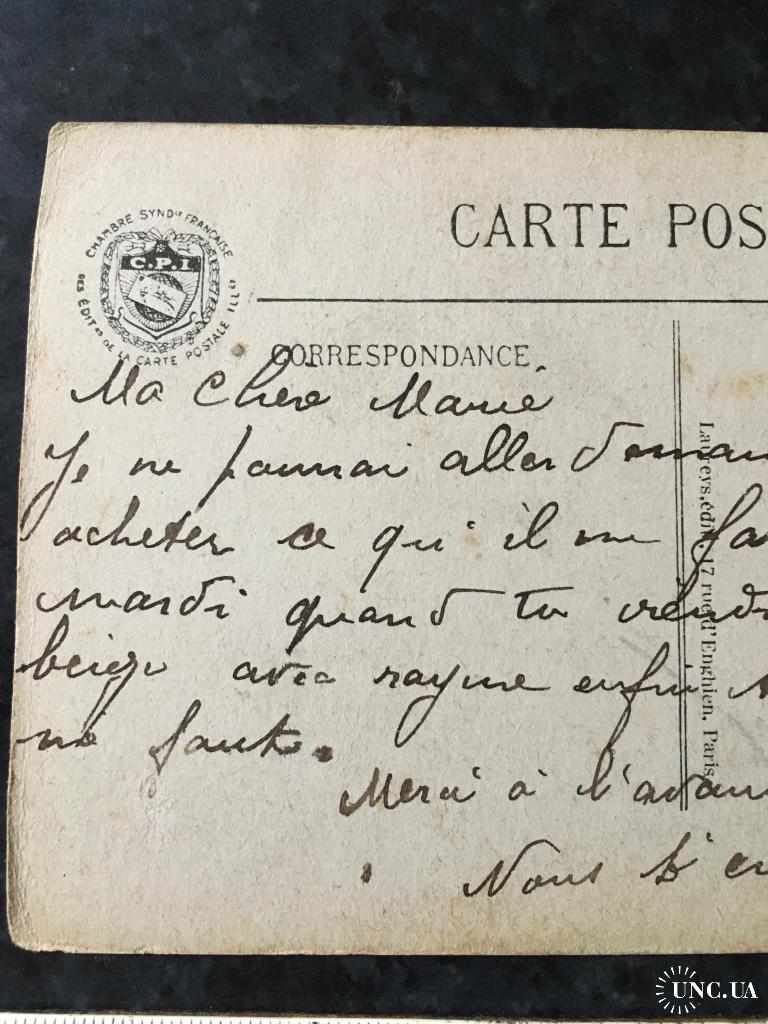 CHAMBRE SYND.le FRANÇAISE
DES ÉDIT.rs DE LA CARTE POSTALE ILL
C.P.I
CARTE POS
CORRESPONDANCE
Ma chere Marie
Je ne pourrai aller deman
acheter ce qu'il me fa
mardi quand tu viend
beige avec rayure enfin
me faut.
Merci à l'avan
Nous t'en
Laureys, édit 17 rue d'Enghien, Paris
UNC.UA